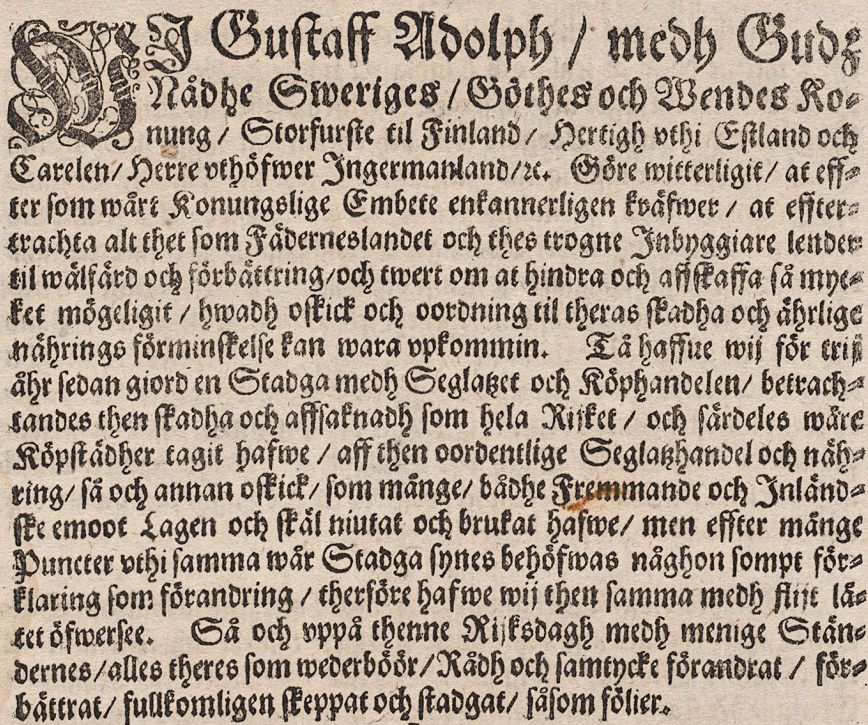 WJ Gustaff Adolph / medh Gudz
Nådhe Sweriges / Göthes och Wendes Ko-
nung / Storfurste til Finland / Hertigh vthi Estland och
Carelen / Herre vthöfwer Ingermanland / ꝛc. Göre witterligit / at eff-
ter som wårt Konungslige Embete enkannerligen kräfwer / at effter-
trachta alt thet som Fäderneslandet och thes trogne Inbyggiare lender
til wälfärd och förbättring / och twert om at hindra och affskaffa så myc-
ket mögeligit / hwadh oskick och oordning til theras skadha och ährlige
nährings förminskelse kan wara vpkommin. Tå haffue wij för trij
åhr sedan giord en Stadga medh Seglatzet och Köphandelen / betrach-
tandes then skadha och affsaknadh som hela Rijket / och särdeles wåre
Köpstädher tagit hafwe / aff then oordentlige Seglatzhandel och näh-
ring / så och annan oskick / som månge / bådhe Fremmande och Inländ-
ske emoot Lagen och skäl niutat och brukat hafwe / men effter månge
Puncter vthi samma wår Stadga synes behöfwas någhon sompt för-
klaring som förandring / therföre hafwe wij then samma medh flijt lå-
tet öfwersee. Så och vppå thenne Rijksdagh medh menige Stän-
dernes / alles theres som wederböör / Rådh och samtycke förandrat / för-
bättrat / fullkomligen skeppat och stadgat / såsom följer.